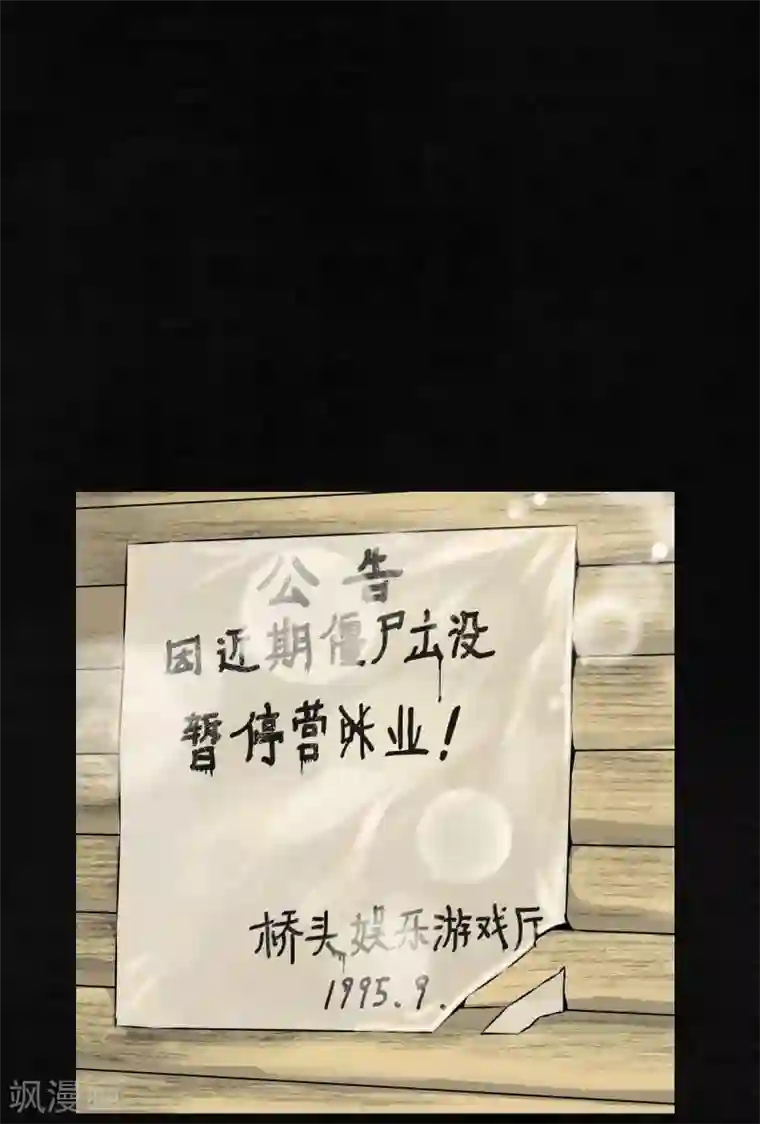 公告
因近期僵尸出没
暂停营业！
桥头娱乐游戏厅
1995.9.
飒漫画